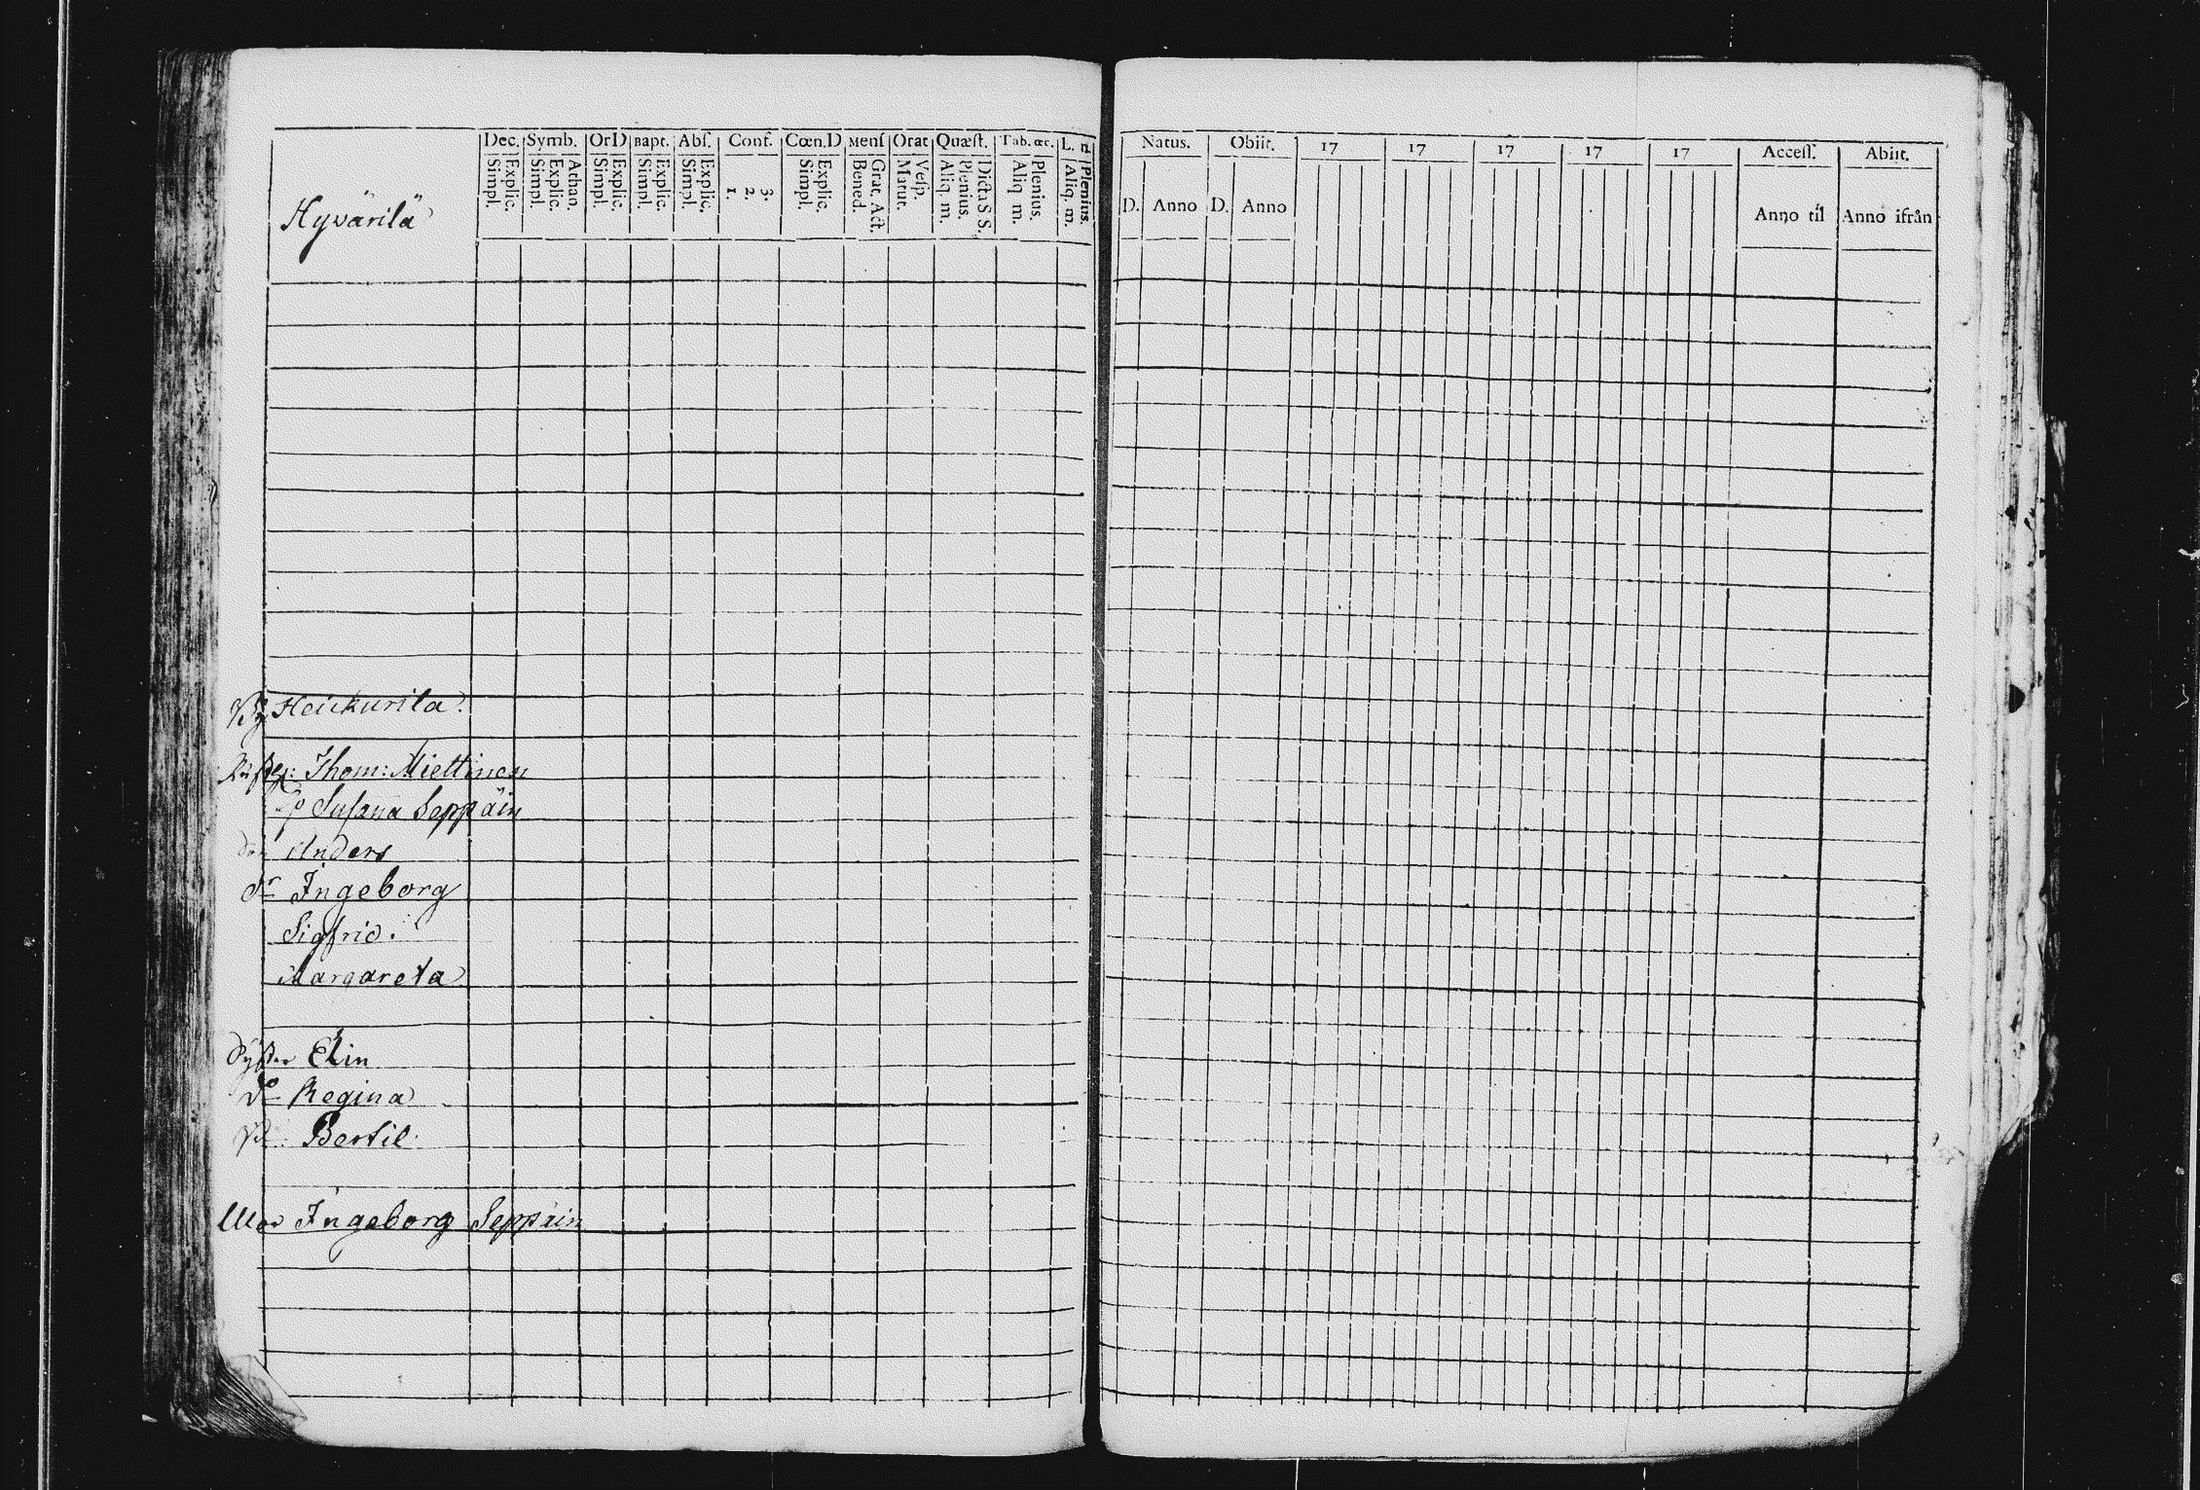 Dec. Symb. OrD Bapt. Abſ. Conf. Cœn.D Menſ Orat Quæſt. Tab. œc. L. d
Simpl. Explic. Simpl. Explic. Athan. Simpl. Explic. Simpl. Explic. Simpl. Explic. 1. 2. 3. Simpl. Explic. Bened. Grat. Act. Matut. Veſp. Aliq. m. Plenius. Dicta S S. Aliq. m. Plenius. Aliq. m. Plenius.
Hyvärilä
Natus. Obiit. 17 17 17 17 17 Acceſſ. Abiit.
D. Anno D. Anno Anno til Anno ifrån
By Heickurila.
Thom: Miettinen
Suſana Seppäin
Son Anders
Dr Ingeborg
Sigfrid.
Margareta
Syſter Elin
Do Regina
Bertil
Mor Ingeborg Seppäin